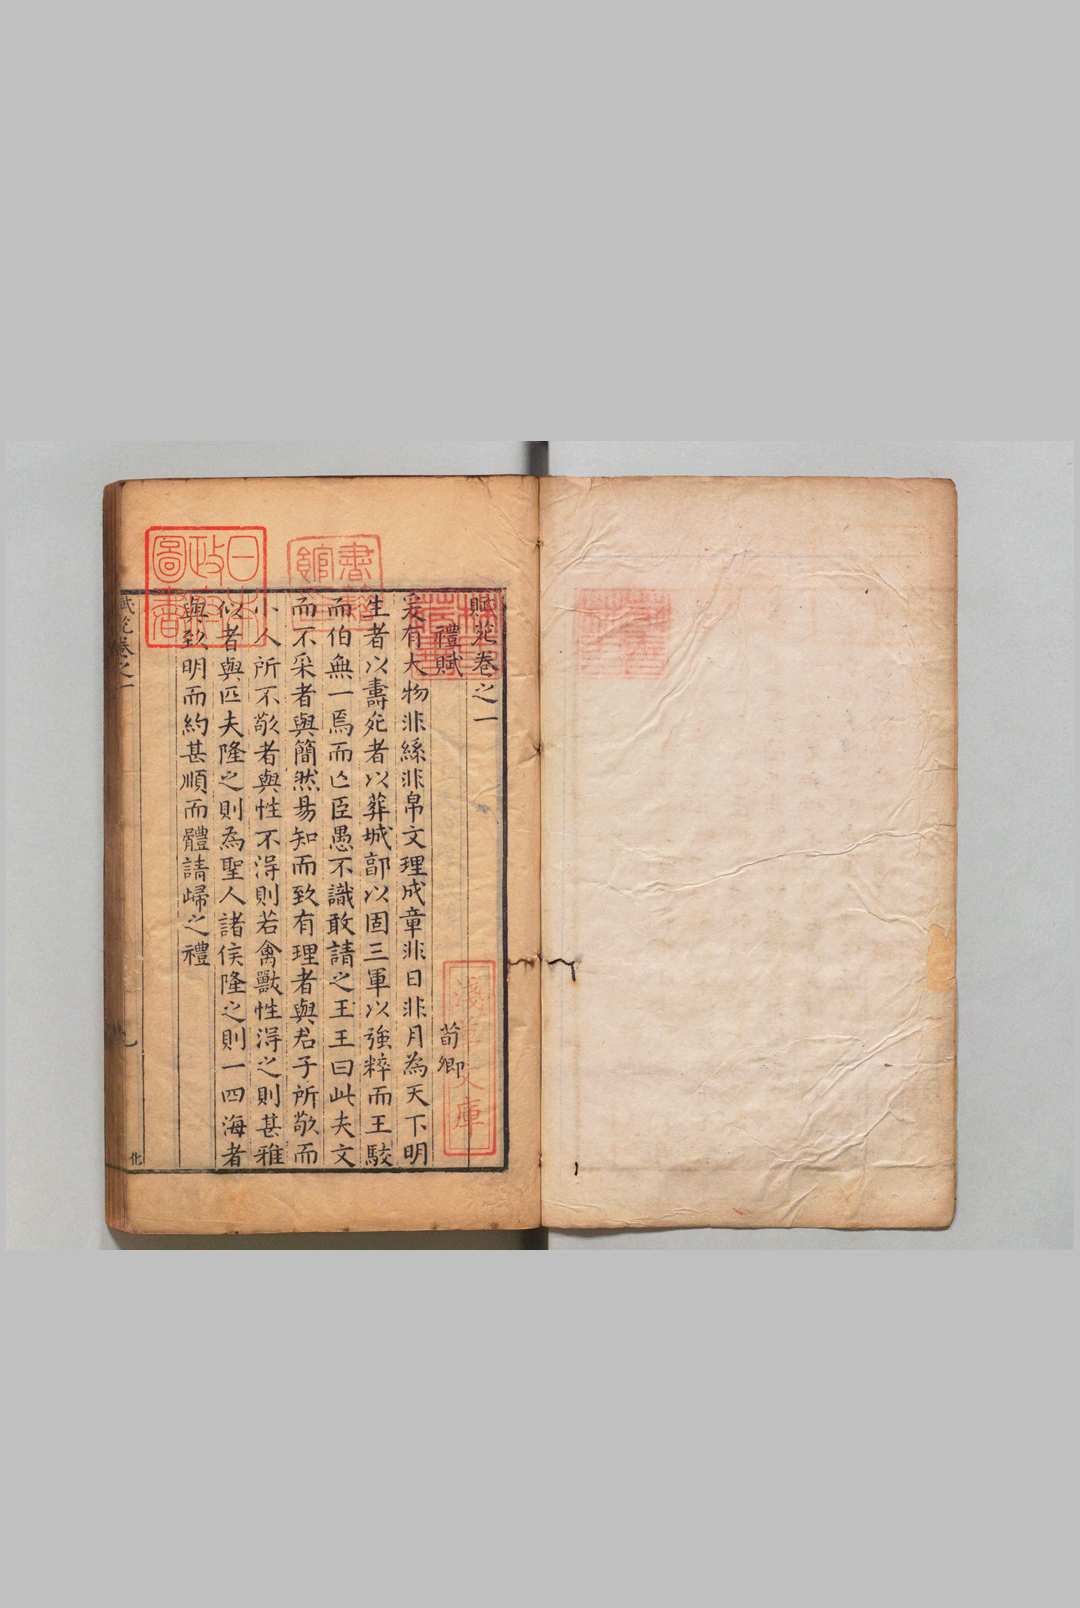 賦苑卷之一
禮賦
荀卿
爰有大物非絲非帛文理成章非日非月為天下明
生者以壽死者以葬城郭以固三軍以強粹而王駁
而伯無一焉而亡臣愚不識敢請之王王曰此夫文
而不采者與簡然易知而致有理者與君子所敬而
小人所不敬者與性不得則若禽獸性得之則甚雅
似者與匹夫隆之則為聖人諸侯隆之則一四海者
與致明而約甚順而體請歸之禮
賦苑卷之一
日本
政府
圖書
書籍
館
淺草文庫